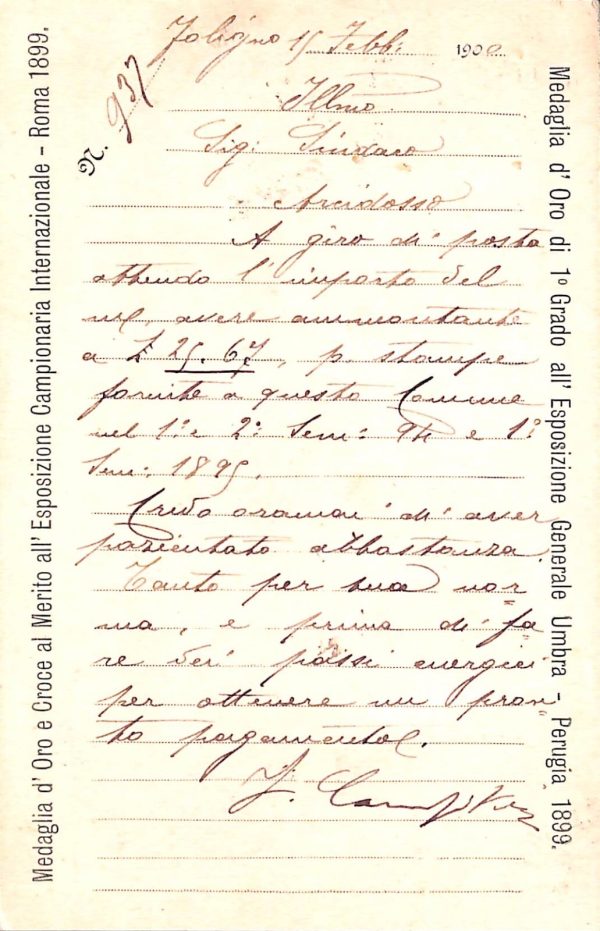 Medaglia d' Oro e Croce al Merito all' Esposizione Campionaria Internazionale - Roma 1899.
N. 937
Foligno 15 Febb: 1900
Illmo
Sig: Sindaco
Arcidosso
A giro di posta
attendo l'importo del
mio avere ammontante
a £ 25.67, p. stampe
fornite a questo Comune
nel 1: e 2: Sem: 94 e 1:
Sem: 1895.
Credo oramai di aver
pazientato abbastanza.
Tanto per sua nor=
ma, e prima di fa=
re dei passi energici
per ottenere un pron=
to pagamento.
F.
Medaglia d' Oro di 1º Grado all' Esposizione Generale Umbra - Perugia 1899.